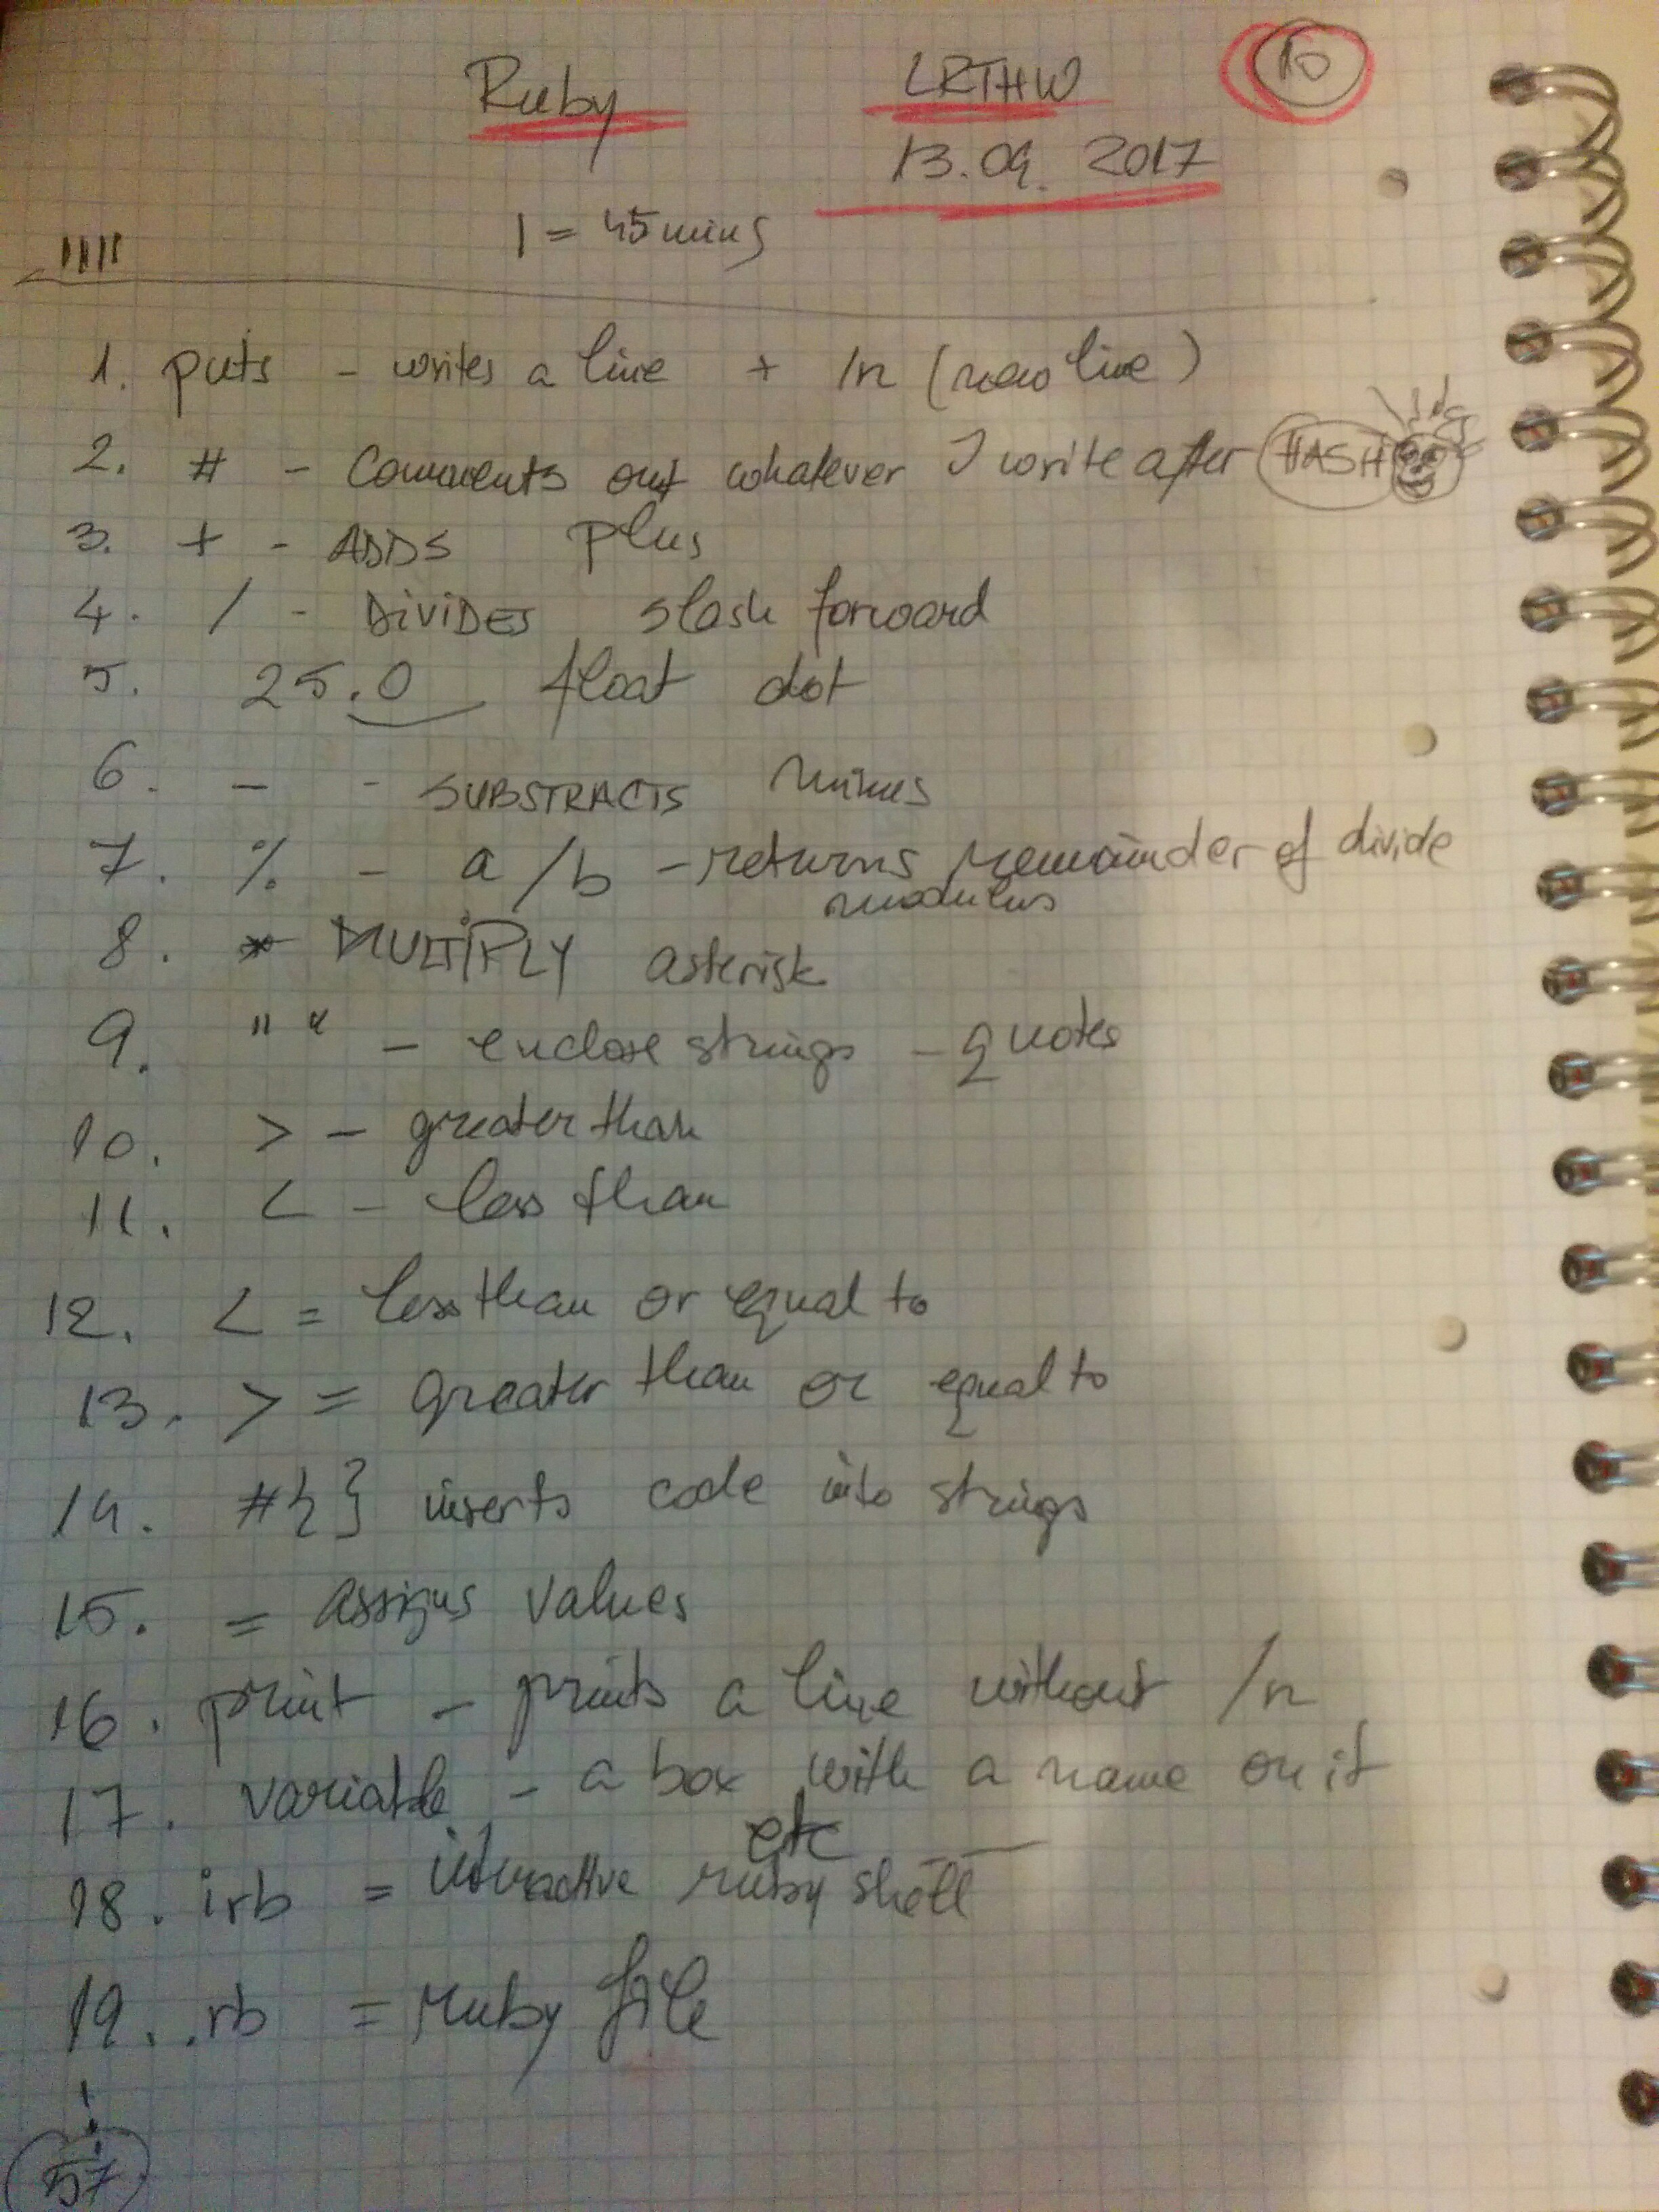 Ruby LRTHW 10
13.09.2017
1 = 45 mins
1. puts - writes a line + /n (new line)
2. # - Comments out whatever I write after HASH
3. + - ADDS plus
4. / - DiViDES slash forward
5. 25.0 float dot
6. - - SUBSTRACTS minus
7. % - a/b - returns remainder of divide
modulus
8. * MULTiPLY asterisk
9. " " - enclose strings - quotes
10. > - greater than
11. < - less than
12. <= less than or equal to
13. >= greater than or equal to
14. #{} inserts code into strings
15. = assigns values
16. print - prints a line without /n
17. variable - a box with a name on it
etc
18. irb = interactive ruby shell
19. .rb = ruby file
57